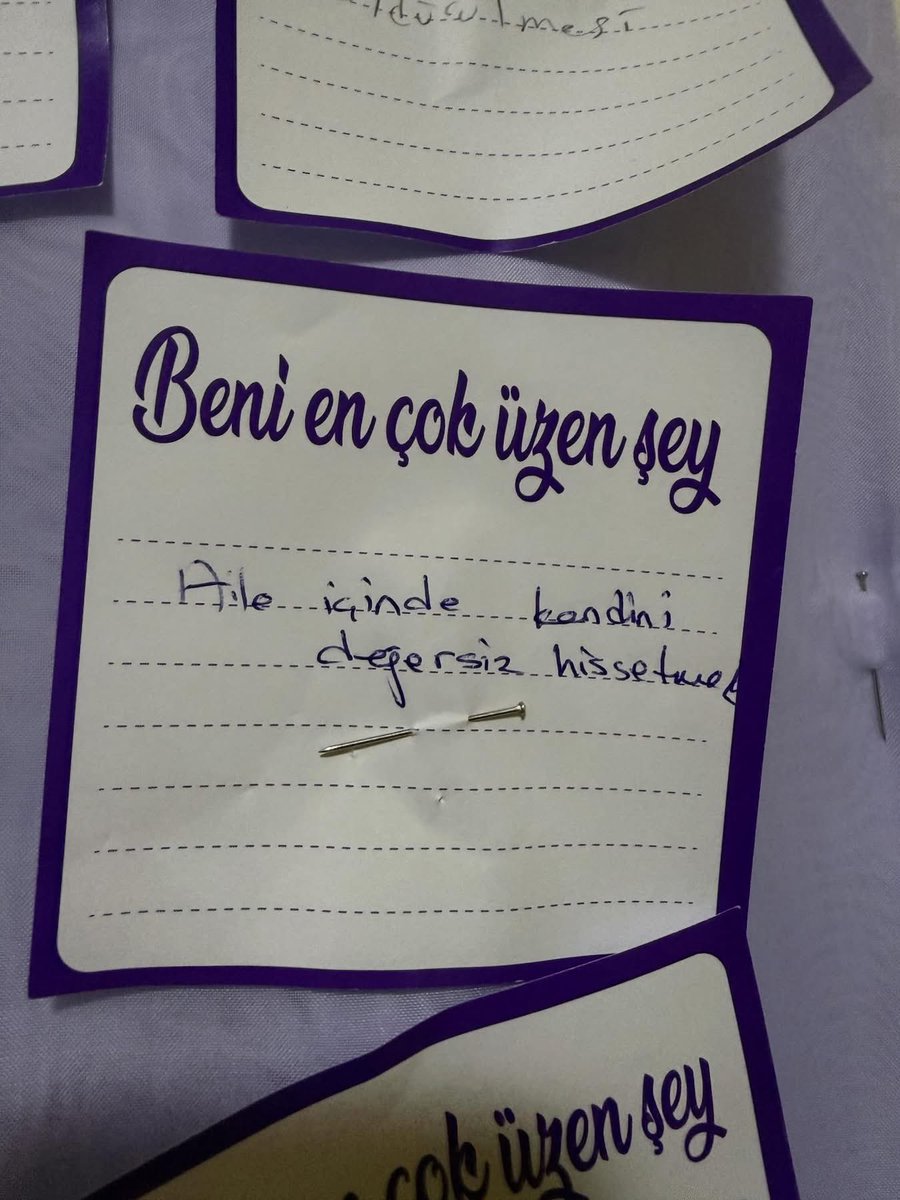 Beni en çok üzen şey
Aile içinde kendini
değersiz hissetmek
çok üzen şey